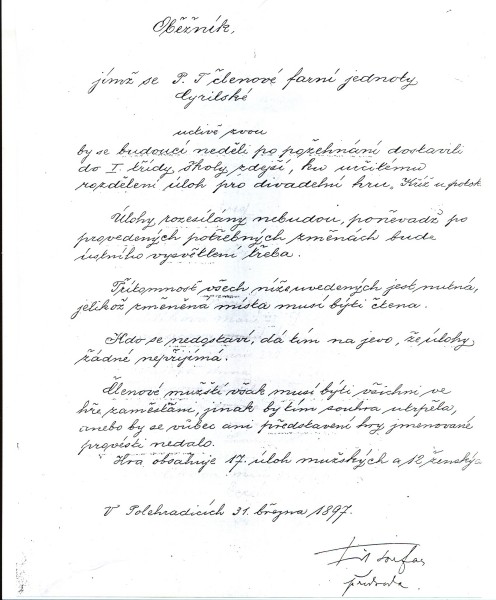 Oběžník,
jímž se P. T členové farní jednoty
Cyrilské
uctivě zvou
by se budoucí neděli po požehnání dostavili
do I. třídy školy zdejší, ku určitému
rozdělení úloh pro divadelní hru, Kříž u potok
Úlohy rozesílány nebudou, poněvadž po
provedených potřebných změnách bude
ústního vysvětlení třeba.
Přítomnost všech níže uvedených jest nutná,
jelikož změněná místa musí býti čtena.
Kdo se nedostaví, dá tím na jevo, že úlohy
žádné nepřijímá.
Členové mužští však musí býti všichni ve
hře zaměstnáni, jinak by tím souhra utrpěla,
anebo by se vůbec ani představení hry jmenované
provésti nedalo.
Hra obsahuje 17. úloh mužských a 12 ženský
V Polehradicích 31. března 1897.
předseda.